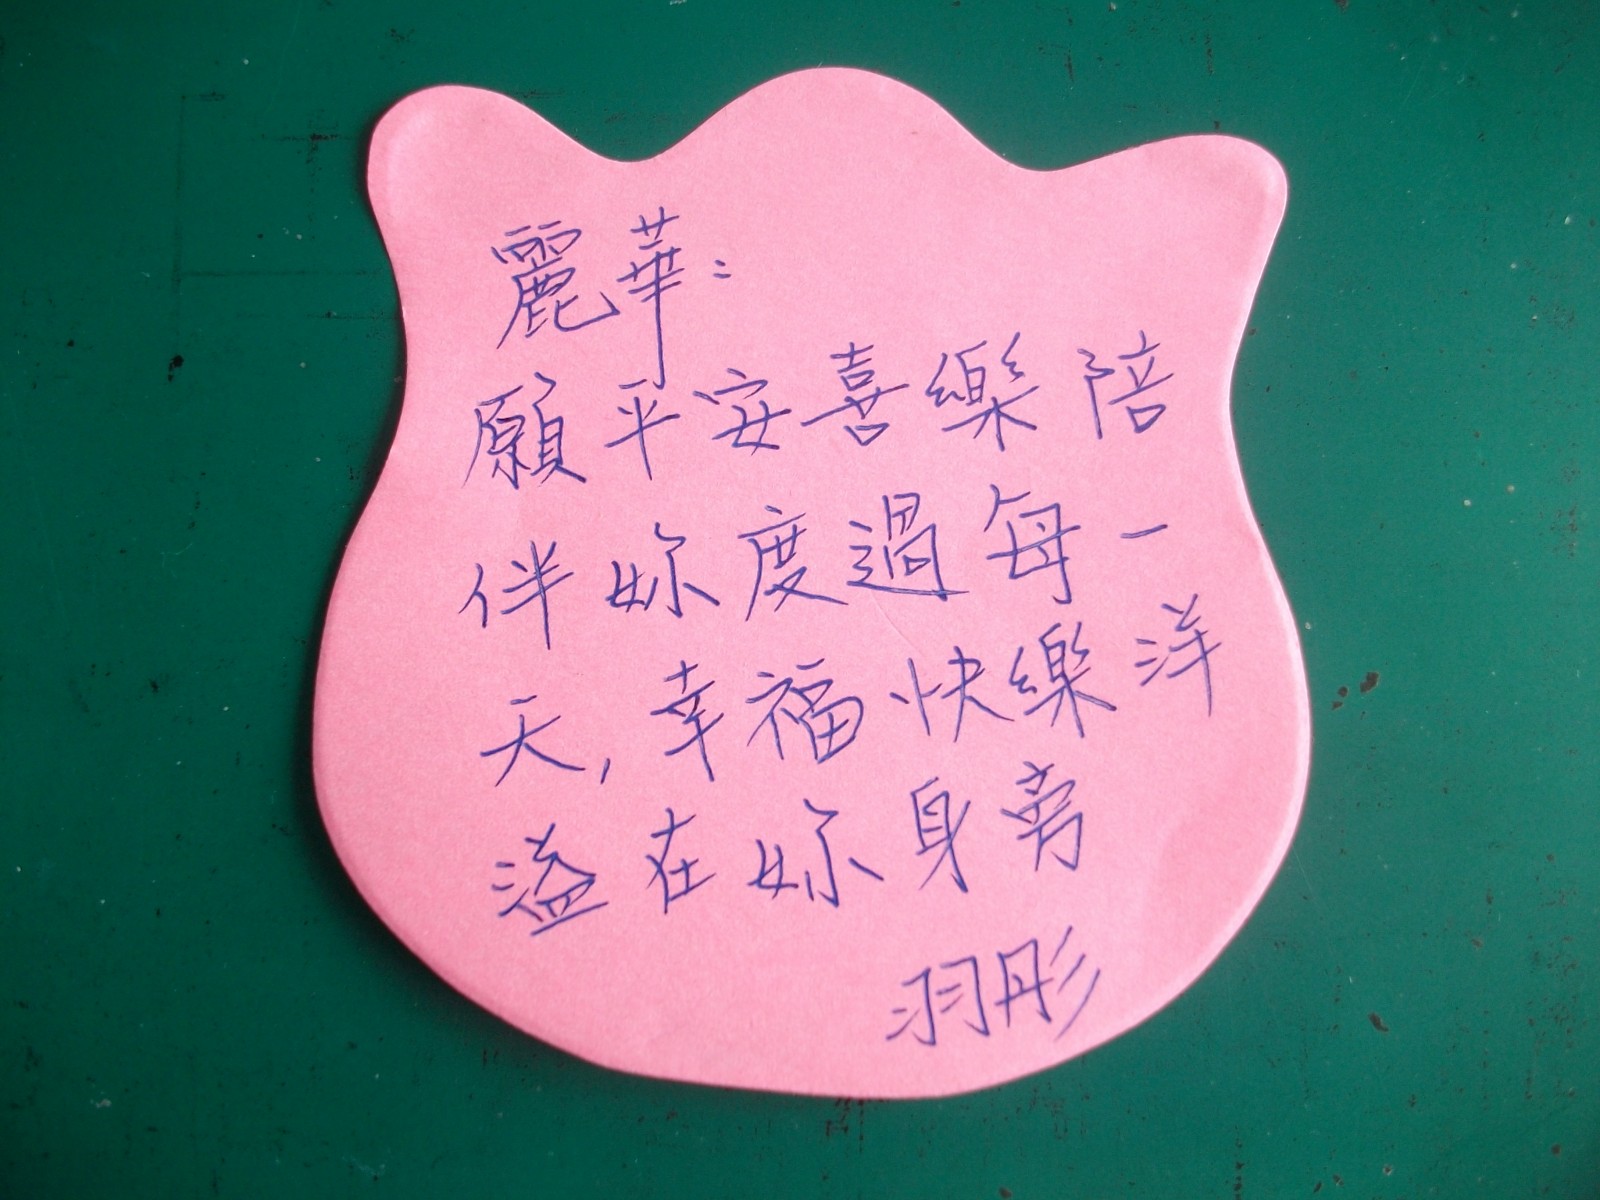 麗華:
願平安喜樂陪
伴妳度過每一
天,幸福快樂洋
溢在妳身旁
羽彤